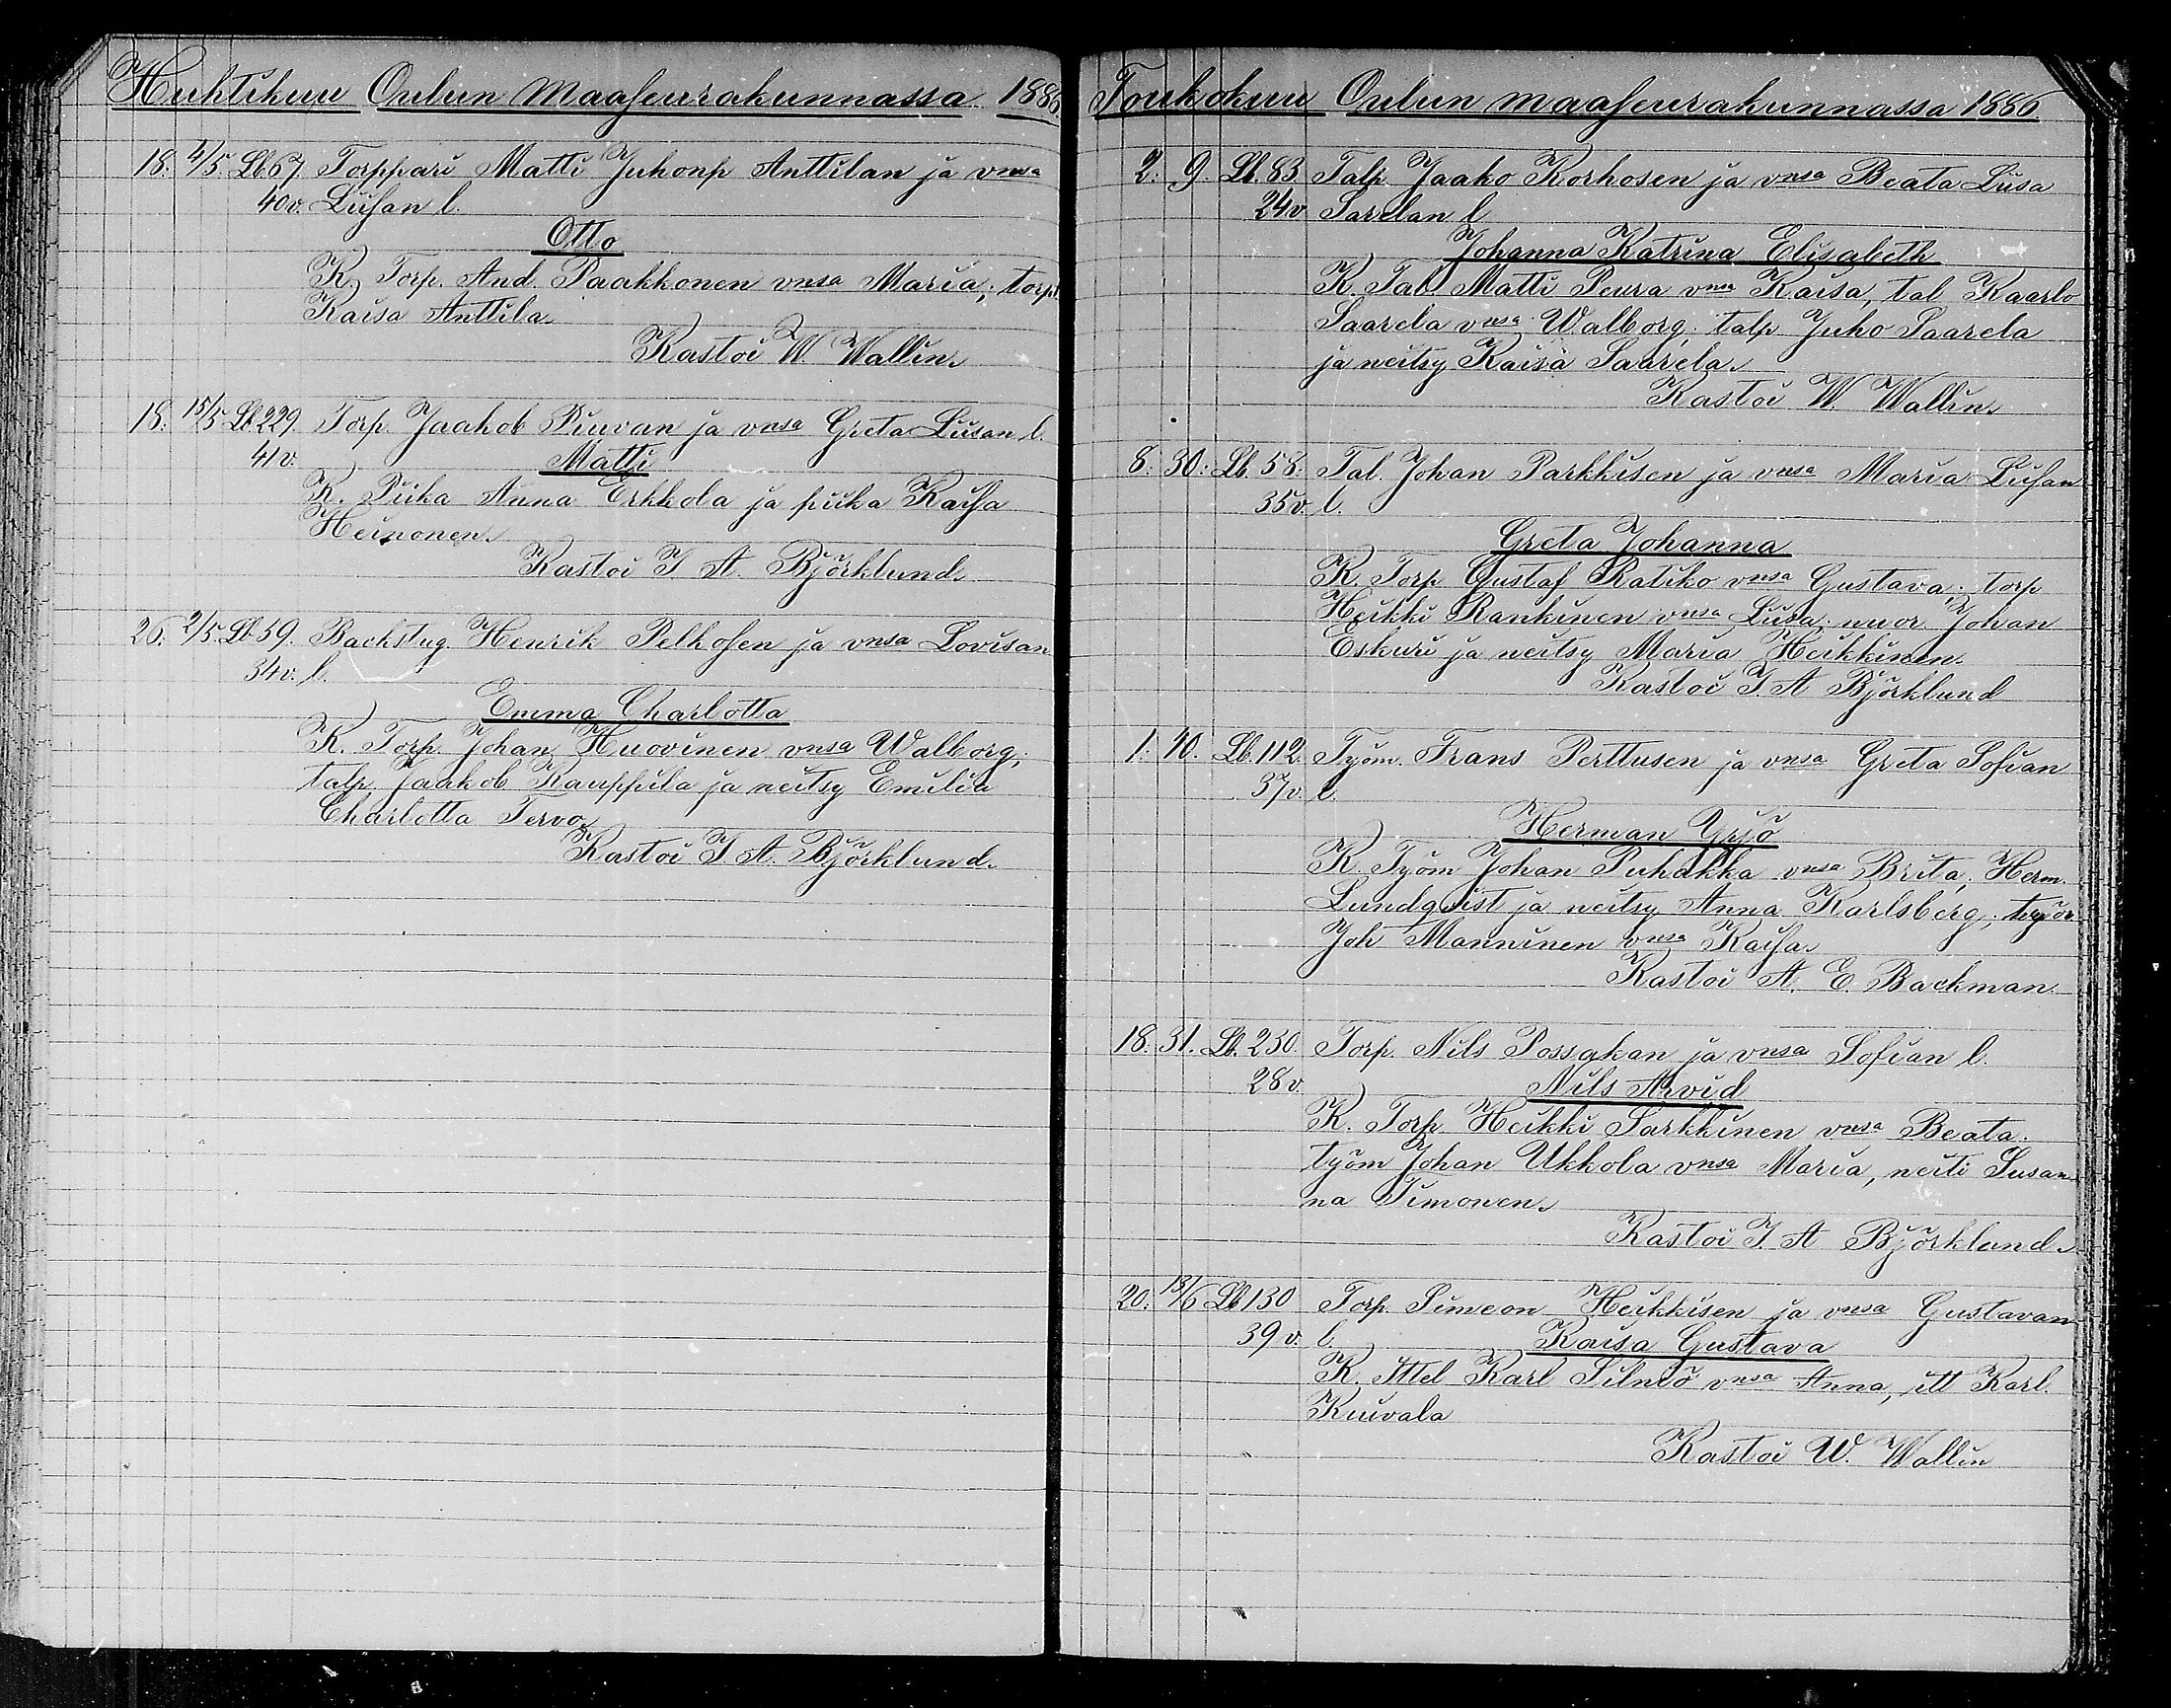 Huhtikuu Oulun Maaseurakunnassa. 1886
18. 4/5. Lb 67. Torppari Matti Juhonp Anttilan ja vmsa
40 v. Liisan l.
Otto
K. Torp. And. Paakkonen vmsa Maria; torpt
Kaisa Anttila.
Kastoi W. Wallin.
18. 15/5 Lb 229. Torp. Jaakob Piuvan ja vmsa Greta Liisan l.
41 v. Matti
K. Piika Anna Erkkola ja piika Kaisa
Heinonen.
Kastoi J A. Björklund.
26. 2/5. Lb 59. Backstug. Henrik Pelkosen ja vmsa Lovisan
34 v. l.
Emma Charlotta
K. Torp. Johan Huovinen vmsa Walborg;
talp. Jaakob Kauppila ja neitsy Emilia
Charlotta Tervo.
Kastoi J. A. Björklund.
Toukokuu Oulun maaseurakunnassa 1886.
2. 9. Lb. 83 Talp. Jaako Korhosen ja vmsa Beata Liisa
24 v. Sarelan l
Johanna Katrina Elisabeth
K. Tal. Matti Peura vmsa Kaisa, tal Kaarlo
Saarela vmsa Walborg; talp Juho Saarela
ja neitsy Kaisa Saarela.
Kastoi W. Wallin.
8. 30. Lb. 58. Tal. Johan Parkkisen ja vmsa Maria Liisan
35 v. l.
Greta Johanna
K. Torp Gustaf Ratiko vmsa Gustava; torp
Heikki Rankinen vmsa Liisa; nuor Johan
Eskuri ja neitsy Maria Heikkinen.
Kastoi J. A Björklund
1. 40. Lb. 112. Työm. Frans Perttusen ja vmsa Greta Sofian
37 v. l.
Herman Yrjö
K. Työm Johan Puhakka vmsa Brita; Herm.
Lundqvist ja neitsy Anna Karlsberg;
Joh Manninen vmsa Kaisa.
Kastoi A. E. Backman.
18. 31. Lb. 230. Torp. Nils Possakan ja vmsa Sofian l.
28 v. Nils Arvid
K. Torp. Heikki Sarkkinen vmsa Beata.
työm Johan Ukkola vmsa Maria, neiti Susan
na Timonen.
Kastoi J. A Björklund.
20. 13/6 Lb 130 Torp. Simeon Heikkisen ja vmsa Gustavan
39 v. l. Kaisa Gustava
K. Ittel Karl Silniö vmsa Anna, itt Karl.
Kuivala
Kastoi W. Wallin